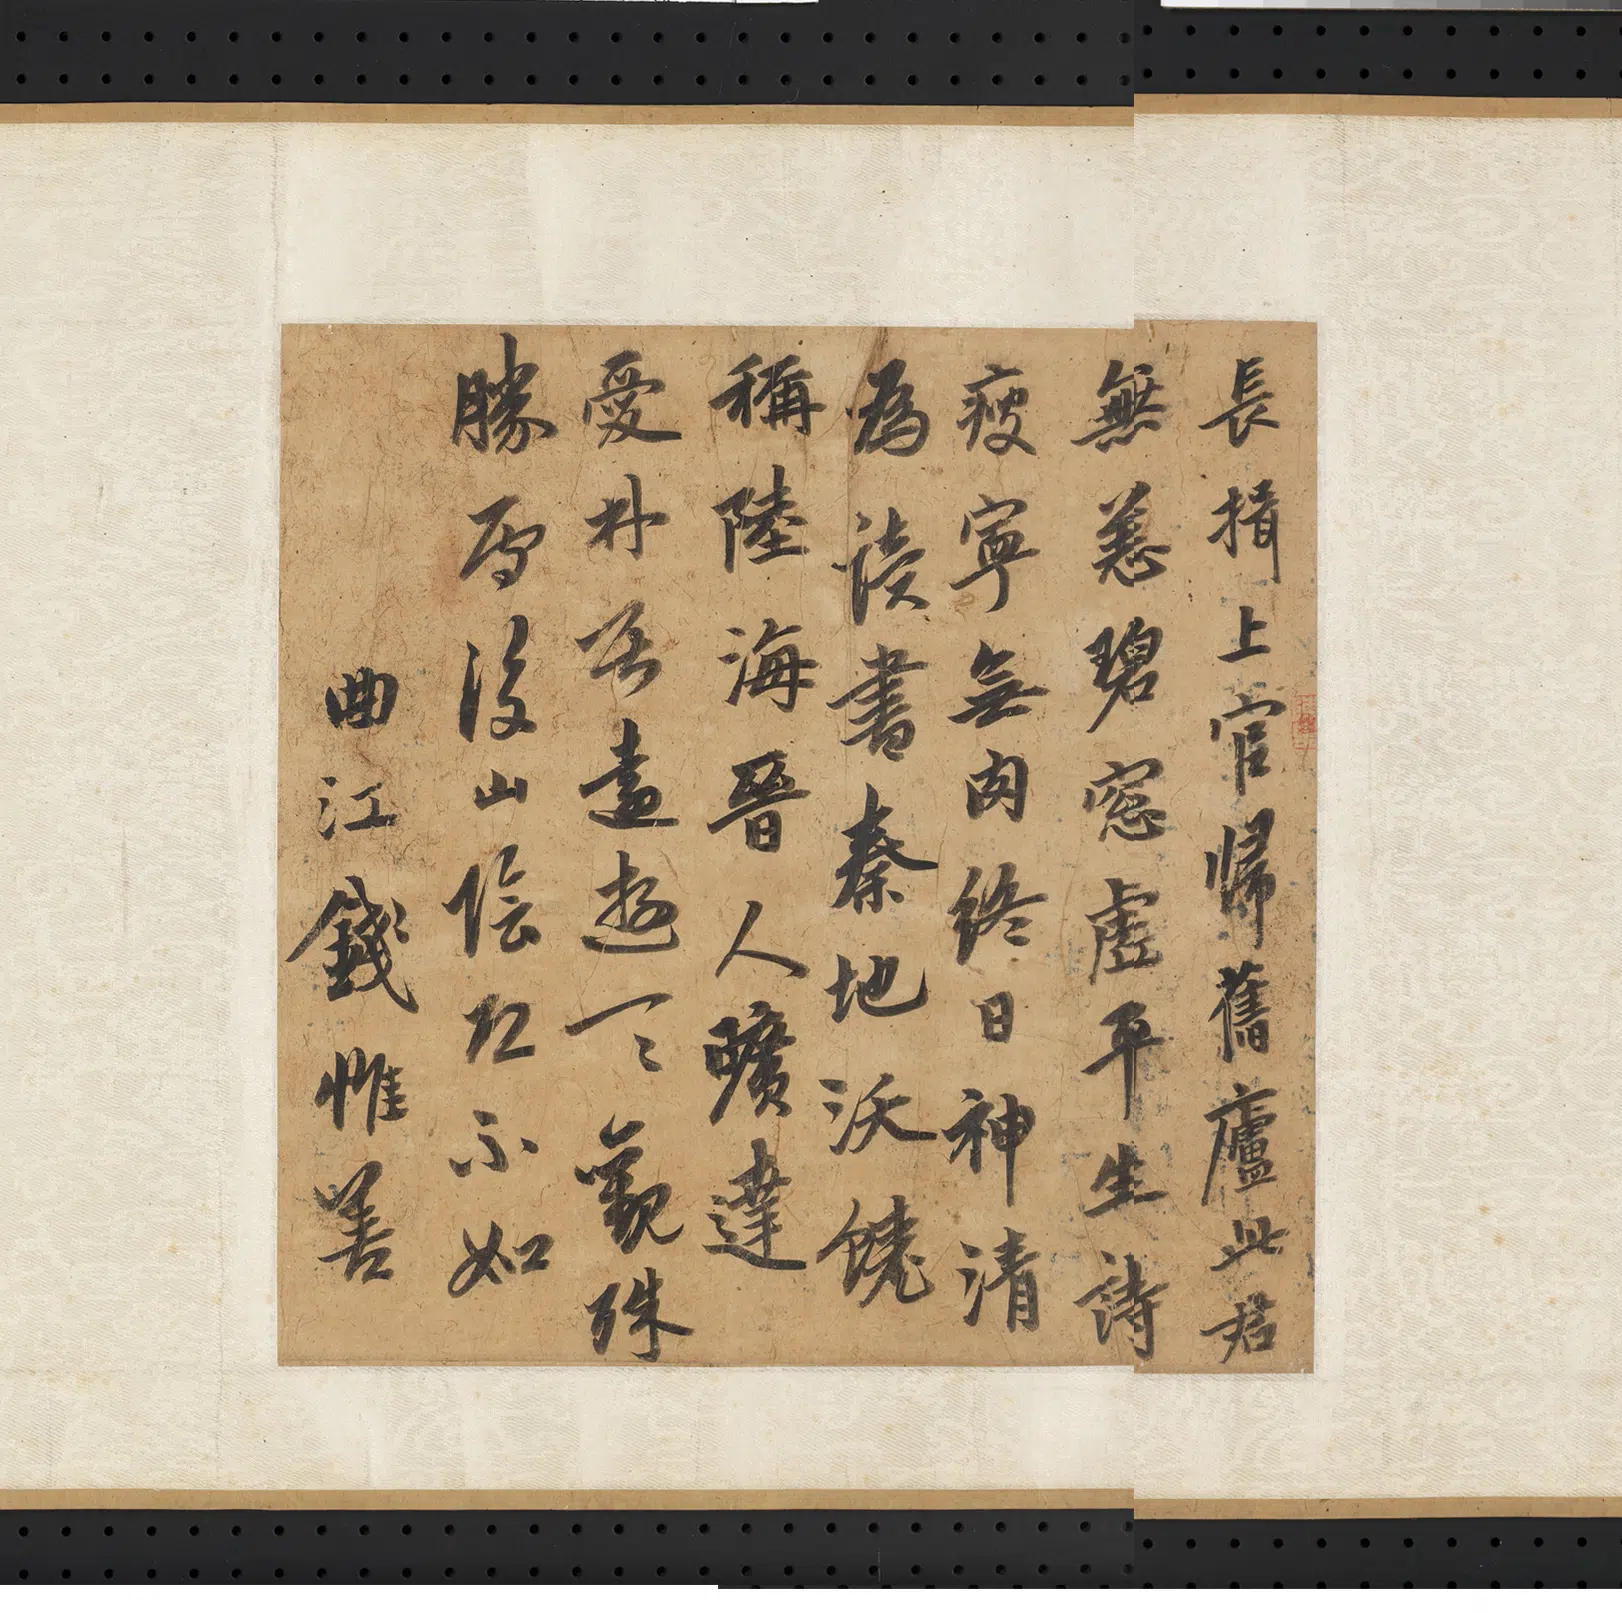 長揖上官歸舊廬此君
無恙碧窓虛平生詩
瘦寧無肉終日神清
為讀書秦地沃饒
稱陸海晉人曠達
愛林居遠遊一〻觀殊
勝雪後山陰不如
曲江錢惟善